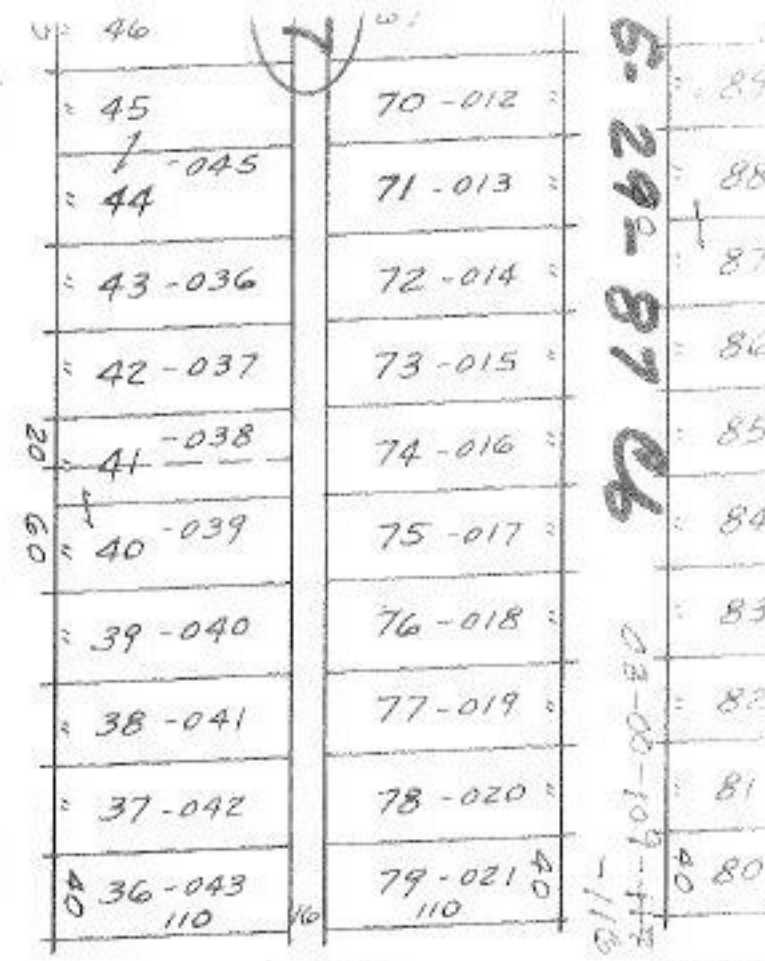 46
45
-045
44
43 -036
42 -037
20
-038
41
60
-039
40
39 -040
38 -041
37 -042
40
36 -043
110
16
7
70 -012
71 -013
72 -014
73 -015
74 -016
75 -017
76 -018
77 -019
78 -020
79 -021
40
110
89
88
87
86
85
84
83
82
81
40
80